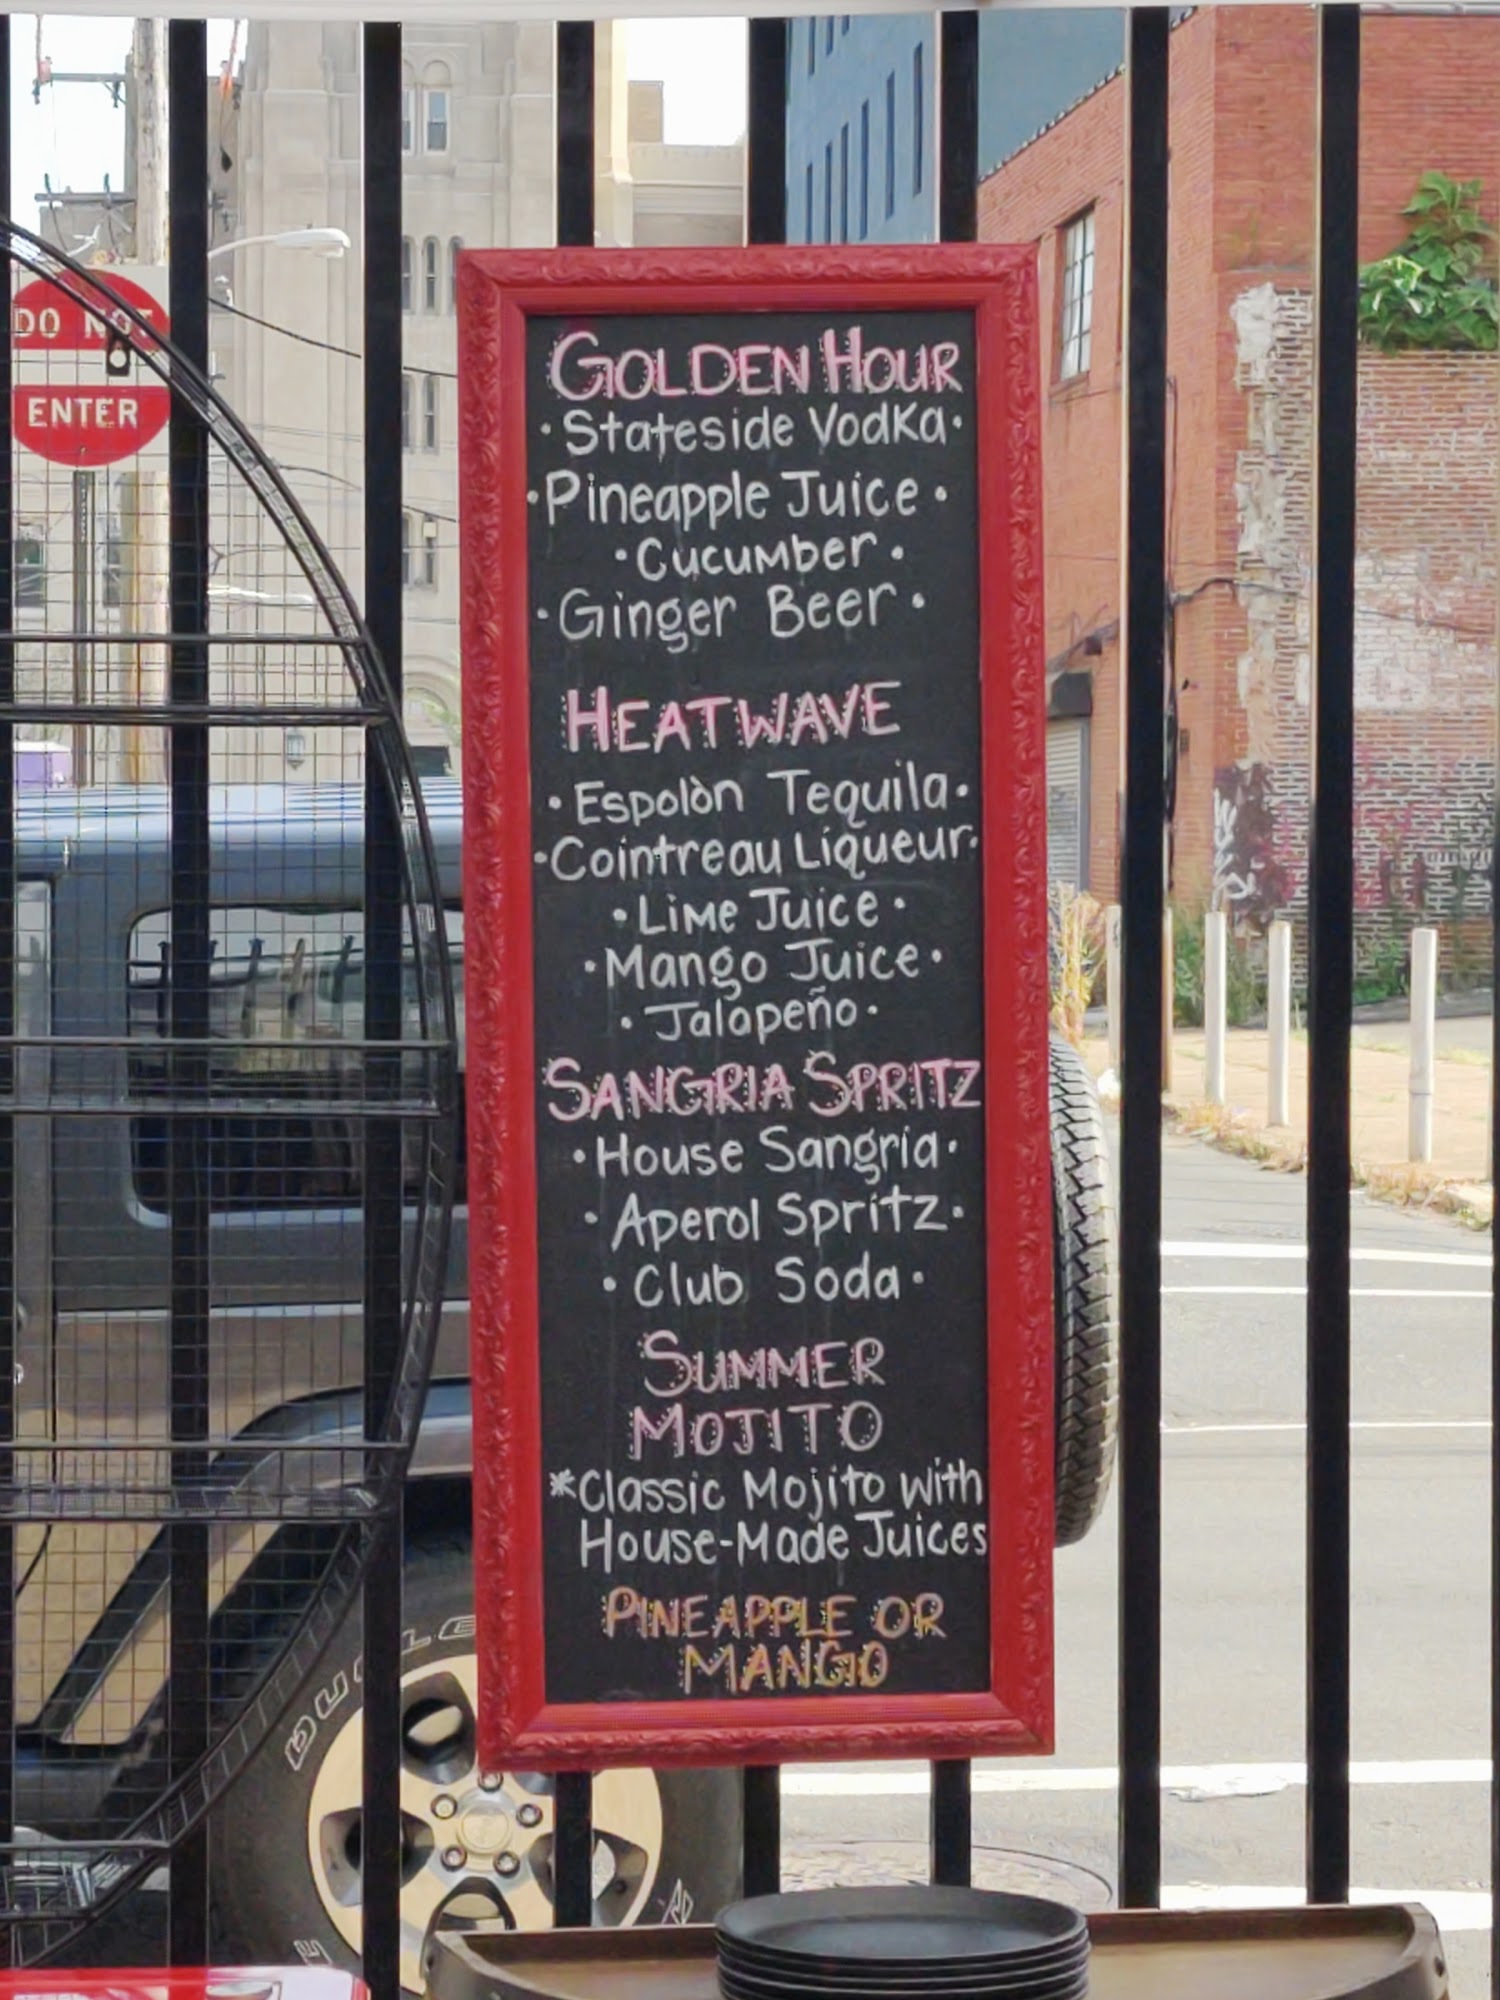 DO NOT
ENTER
GOLDEN HOUR
• Stateside Vodka •
• Pineapple Juice •
• Cucumber •
• Ginger Beer •
HEATWAVE
• Espolòn Tequila •
• Cointreau Liqueur •
• Lime Juice •
• Mango Juice •
• Jalapeño •
SANGRIA SPRITZ
• House Sangria •
• Aperol Spritz •
• Club Soda •
SUMMER
MOJITO
*Classic Mojito with
House-Made Juices
PINEAPPLE OR
MANGO